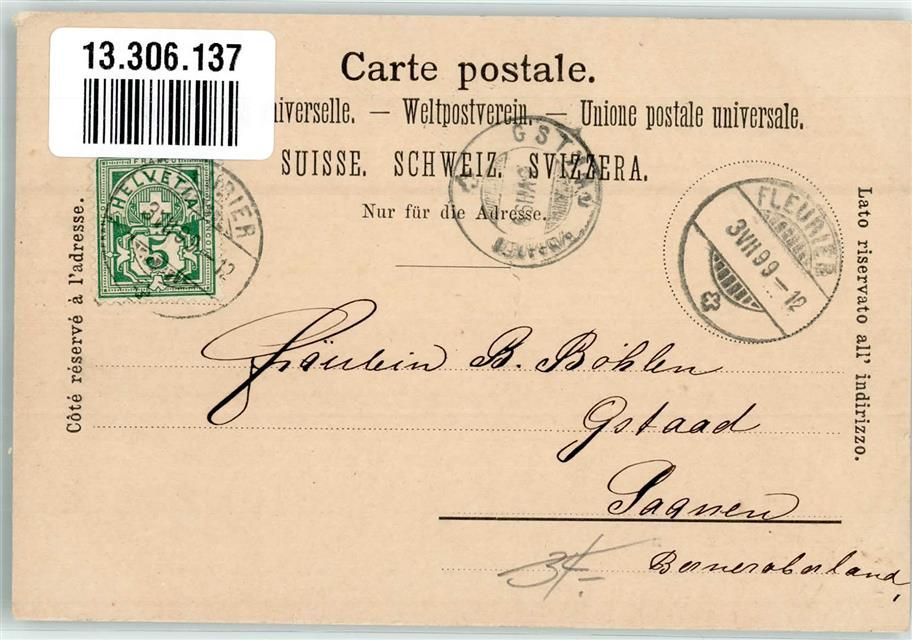 13.306.137
Carte postale.
universelle. — Weltpostverein. — Unione postale universale.
SUISSE. SCHWEIZ. SVIZZERA.
Nur für die Adresse.
Côté réservé à l'adresse.
Lato riservato all' indirizzo.
FRANCO
HELVETIA
5
FLEURIER
3 VII 99 – 12
Fräulein B. Böhlen
Gstaad
Saanen
Berneroberland,